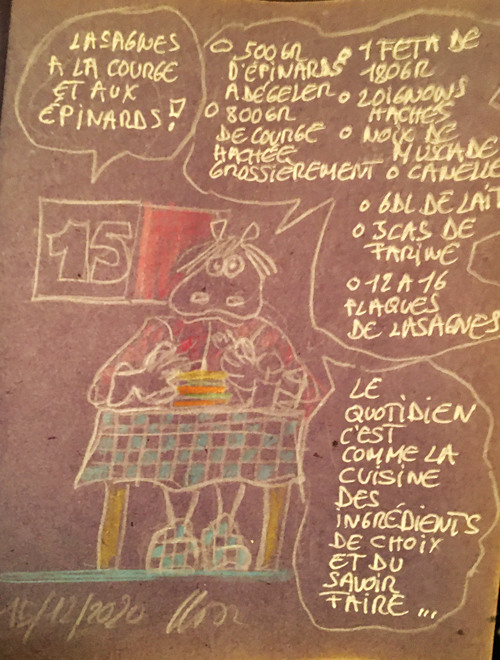 LASAGNES
A LA COURGE
ET AUX
ÉPINARDS!
O 500GR
D'ÉPINARDS
A DEGELER
O 800GR
DE COURGE
HACHÉE
GROSSIEREMENT
O 1 FETA DE
180GR
O 2 OIGNONS
HACHÉS
O NOIX DE
MUSCADE
O CANELLE
O 6DL DE LAIT
O 3 CAS DE
FARINE
O 12 A 16
PLAQUES
DE LASAGNES
15
LE
QUOTIDIEN
C'EST
COMME LA
CUISINE
DES
INGRÉDIENTS
DE CHOIX
ET DU
SAVOIR
FAIRE ...
15/12/2020